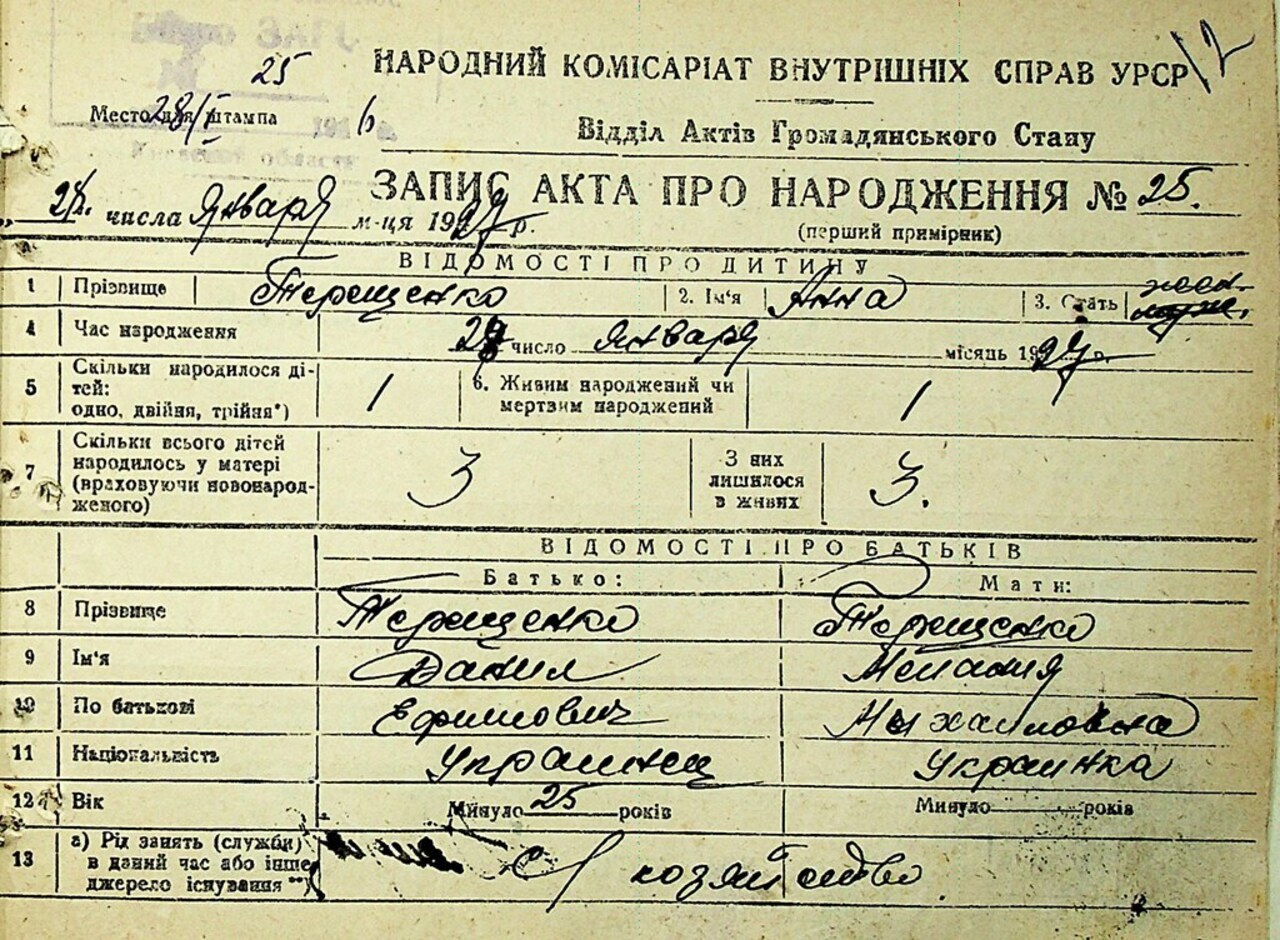 12
НАРОДНИЙ КОМІСАРІАТ ВНУТРІШНІХ СПРАВ УРСР
25
Место для штампа
28/I 6
Відділ Актів Громадянського Стану
Киевской области
ЗАПИС АКТА ПРО НАРОДЖЕННЯ № 25.
28. числа Января м-ця 1927 р.
(перший примірник)
ВІДОМОСТІ ПРО ДИТИНУ
1 Прізвище Терещенко 2. Ім'я Анна 3. Стать жен. муж.
4 Час народження 28 число января місяць 1927 р.
5 Скільки народилося ді-
тей:
одно, двійня, трійня*) 1 6. Живим народжений чи
мертвим народжений 1
7 Скільки всього дітей
народилось у матері
(враховуючи новонарод-
женого) 3 З них
лишилося
в живих 3.
ВІДОМОСТІ ПРО БАТЬКІВ
Батько: Мати:
8 Прізвище Терещенко Терещенко
9 Ім'я Данил Мелания
10 По батькові Ефимович Мыхаиловна
11 Національність Украинец Украинка
12 Вік Минуло 25 років Минуло років
13 а) Рід занять (служби)
в даний час або інше
джерело існування **) с/ хозяйство